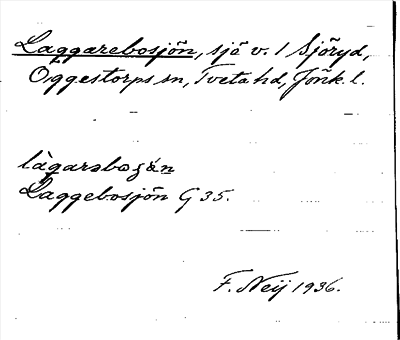 Laggarebosjön, sjö v. l Sjöryd,
Oggestorps sn, Tveta hd, Jönk. l.
Laggebosjön G 35.
F. Neij 1936.